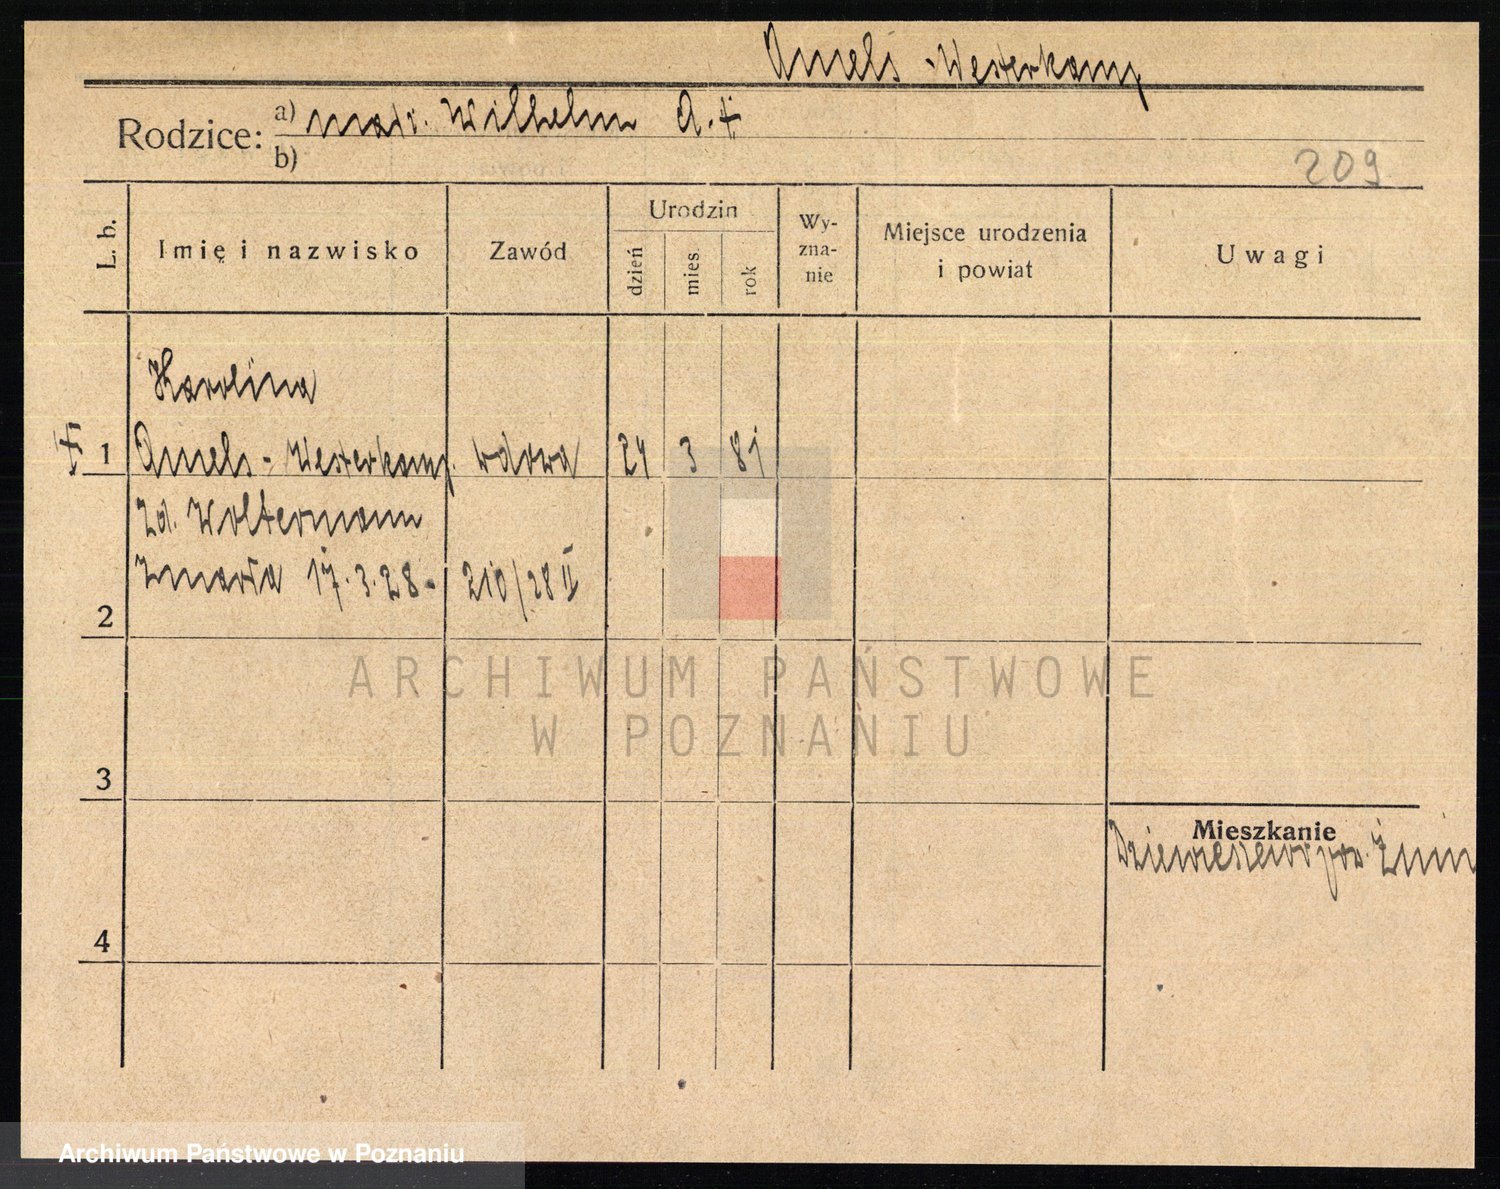 Amels-Westerkamp
Rodzice: a) małż. Wilhelm A. +
b)
209
L. b. Imię i nazwisko Zawód Urodzin dzień mies. rok Wyznanie Miejsce urodzenia i powiat Uwagi
Karolina
+ 1 Amels-Westerkamp. wdowa 24 3 81
zd. Woltermann
zmarła 17.3.28. 210/28 II
2
ARCHIWUM PAŃSTWOWE
W POZNANIU
3
Mieszkanie
pow. Żnin
4
Archiwum Państwowe w Poznaniu